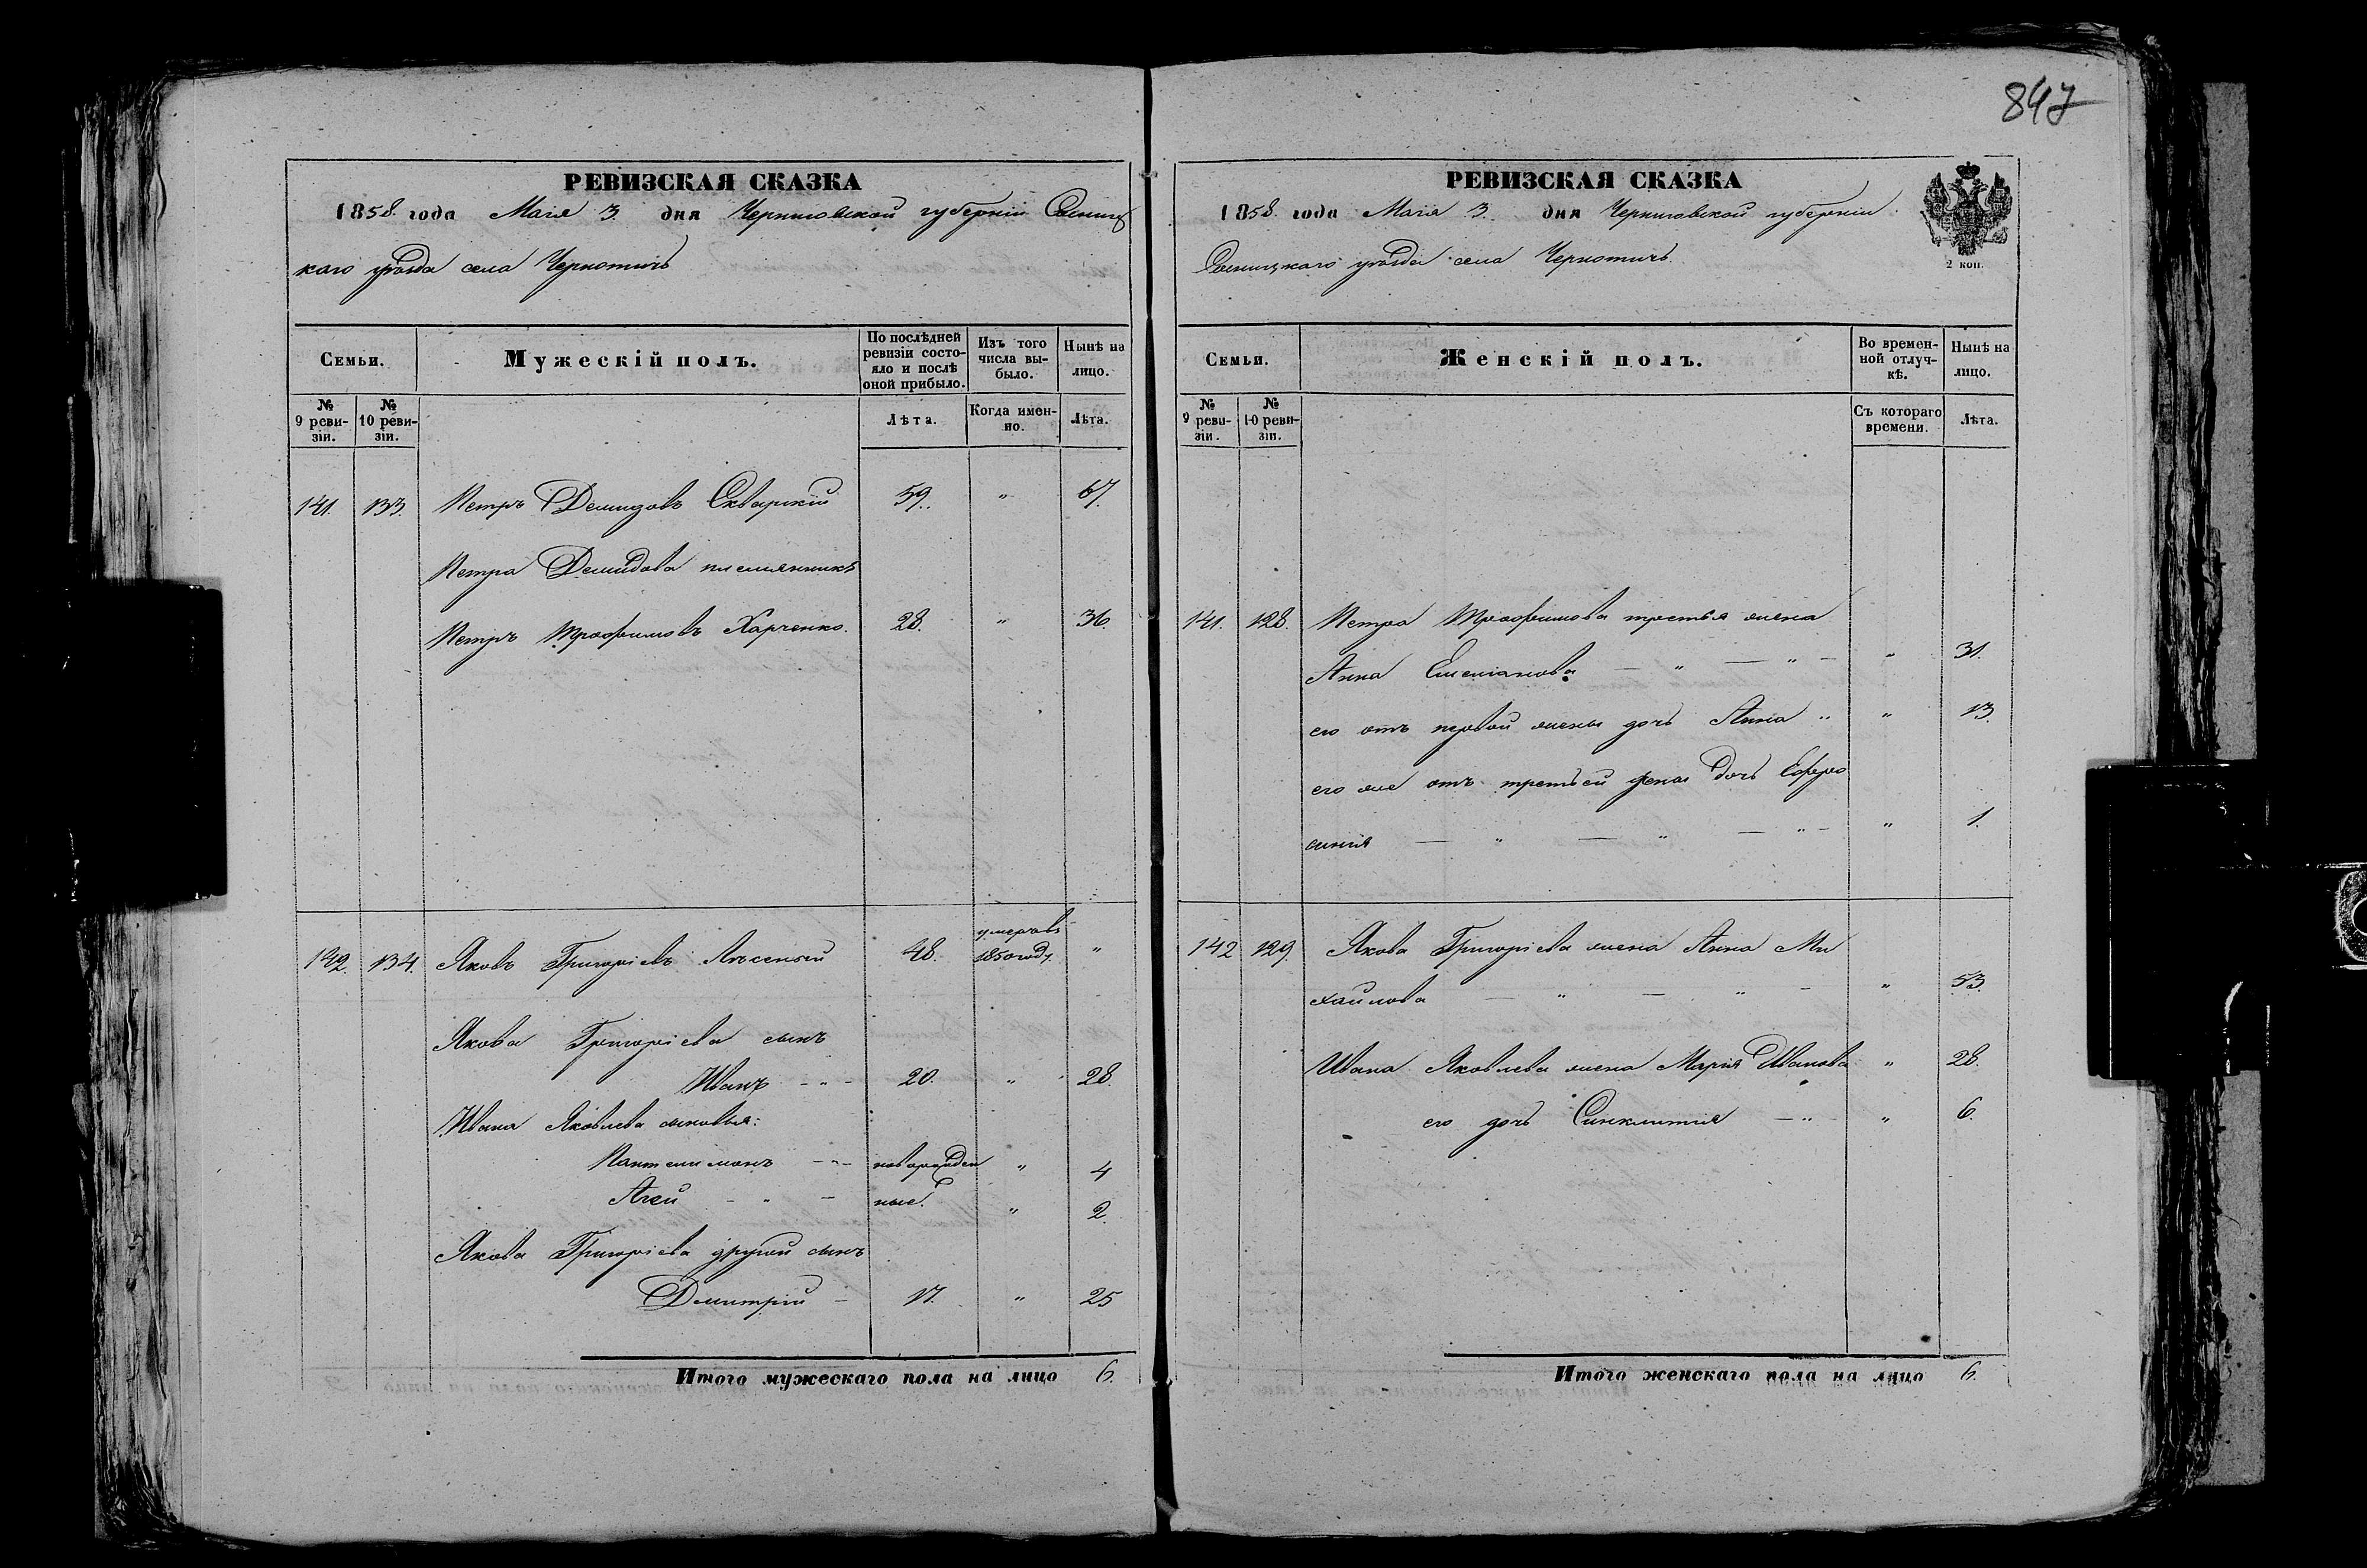 847
РЕВИЗСКАЯ СКАЗКА
1858 года Маія 3 дня Черниговской губерніи Сосниц
каго уѣзда села Чернотичь
Семьи. Мужескій полъ. По послѣдней ревизіи состояло и послѣ оной прибыло. Изъ того числа выбыло. Нынѣ на лицо.
№ 9 ревизіи. № 10 ревизіи. Лѣта. Когда именно. Лѣта.
141. 133. Петръ Демидовъ Скварскій 59. " 67.
Петра Демидова племянникъ
Петръ Трофимовъ Харченко. 28. " 36.
142. 134. Яковъ Григоріевъ Лѣсеный 48. умеръ въ 1850 году. "
Якова Григоріева сынъ
Иванъ - " - 20. " 28.
Ивана Яковлева сыновья:
Пантелимонъ - " - новорожден " 4
Агей - " - ные. " 2.
Якова Григоріева другой сынъ
Дмитрій - 17. " 25
Итого мужескаго пола на лицо 6.
РЕВИЗСКАЯ СКАЗКА
1858. года Маія 3. дня Черниговской губерніи
Сосницкаго уѣзда села Чернотичь.
2 коп.
Семьи. Женскій полъ. Во временной отлучкѣ. Нынѣ на лицо.
№ 9 ревизіи. № 10 ревизіи. Съ котораго времени. Лѣта.
141. 128. Петра Трофимова третья жена
Анна Емеліанова — " — " — " 31.
его отъ первой жены дочь Анна " " 13.
его же отъ третьей жены дочь Ефро
синія — " — " — " — " 1.
142 129. Якова Григоріева жена Анна Ми
хайлова — " — " — " 53.
Ивана Яковлева жена Марія Иванова " 28.
его дочь Синклитія — " " 6.
Итого женскаго пола на лицо 6.